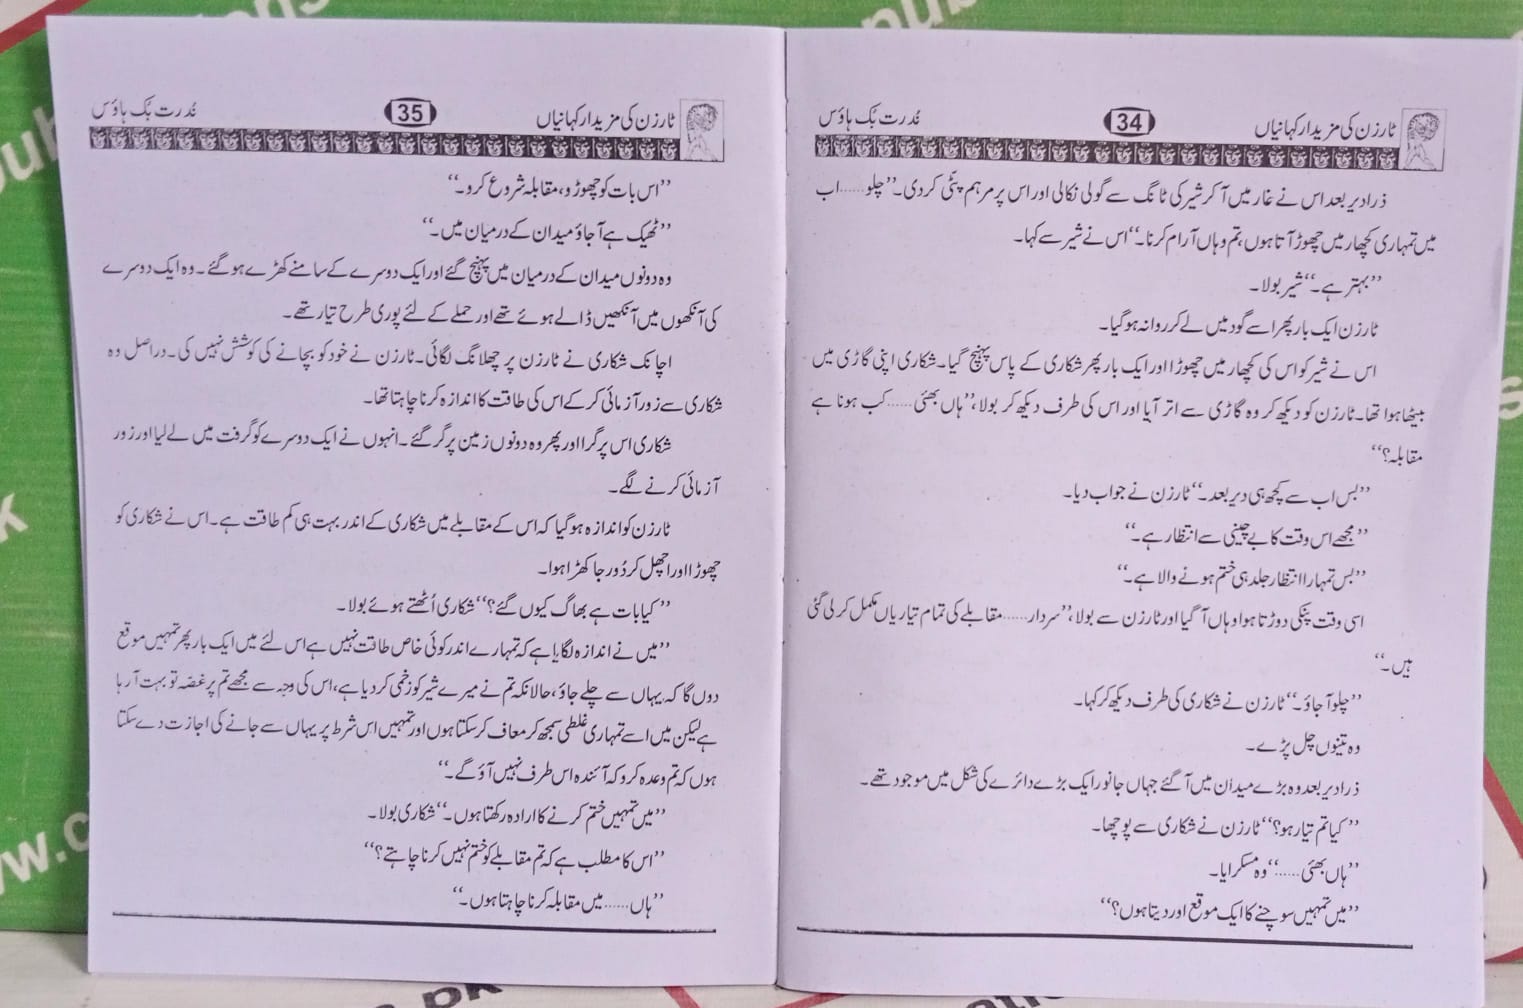 ٹارزن کی مزیدار کہانیاں
34
نُدرت بُک ہاؤس
ذرا دیر بعد اس نے غار میں آ کر شیر کی ٹانگ سے گولی نکالی اور اس پر مرہم پٹّی کر دی۔ ’’چلو......اب
میں تمہاری کچھار میں چھوڑ آتا ہوں، تم وہاں آرام کرنا۔‘‘ اس نے شیر سے کہا۔
’’بہتر ہے۔‘‘ شیر بولا۔
ٹارزن ایک بار پھر اسے گود میں لے کر روانہ ہو گیا۔
اس نے شیر کو اس کی کچھار میں چھوڑا اور ایک بار پھر شکاری کے پاس پہنچ گیا۔ شکاری اپنی گاڑی میں
بیٹھا ہوا تھا۔ ٹارزن کو دیکھ کر وہ گاڑی سے اتر آیا اور اس کی طرف دیکھ کر بولا، ’’ہاں بھئی......کب ہونا ہے
مقابلہ؟‘‘
’’بس اب سے کچھ ہی دیر بعد۔‘‘ ٹارزن نے جواب دیا۔
’’مجھے اس وقت کا بے چینی سے انتظار ہے۔‘‘
’’بس تمہارا انتظار جلد ہی ختم ہونے والا ہے۔‘‘
اسی وقت پنکی دوڑتا ہوا وہاں آ گیا اور ٹارزن سے بولا، ’’سردار......مقابلے کی تمام تیاریاں مکمل کر لی گئی
ہیں۔‘‘
’’چلو آ جاؤ۔‘‘ ٹارزن نے شکاری کی طرف دیکھ کر کہا۔
وہ تینوں چل پڑے۔
ذرا دیر بعد وہ بڑے میدان میں آ گئے جہاں جانور ایک بڑے دائرے کی شکل میں موجود تھے۔
’’کیا تم تیار ہو؟‘‘ ٹارزن نے شکاری سے پوچھا۔
’’ہاں بھئی......‘‘ وہ مسکرایا۔
’’میں تمہیں سوچنے کا ایک موقع اور دیتا ہوں؟‘‘
ٹارزن کی مزیدار کہانیاں
35
نُدرت بُک ہاؤس
’’اس بات کو چھوڑو، مقابلہ شروع کرو۔‘‘
’’ٹھیک ہے آ جاؤ میدان کے درمیان میں۔‘‘
وہ دونوں میدان کے درمیان میں پہنچ گئے اور ایک دوسرے کے سامنے کھڑے ہو گئے۔ وہ ایک دوسرے
کی آنکھوں میں آنکھیں ڈالے ہوئے تھے اور حملے کے لئے پوری طرح تیار تھے۔
اچانک شکاری نے ٹارزن پر چھلانگ لگائی۔ ٹارزن نے خود کو بچانے کی کوشش نہیں کی۔ دراصل وہ
شکاری سے زور آزمائی کر کے اس کی طاقت کا اندازہ کرنا چاہتا تھا۔
شکاری اس پر گرا اور پھر وہ دونوں زمین پر گر گئے۔ انہوں نے ایک دوسرے کو گرفت میں لے لیا اور زور
آزمائی کرنے لگے۔
ٹارزن کو اندازہ ہو گیا کہ اس کے مقابلے میں شکاری کے اندر بہت ہی کم طاقت ہے۔ اس نے شکاری کو
چھوڑا اور اچھل کر دُور جا کھڑا ہوا۔
’’کیا بات ہے بھاگ کیوں گئے؟‘‘ شکاری اُٹھتے ہوئے بولا۔
’’میں نے اندازہ لگایا ہے کہ تمہارے اندر کوئی خاص طاقت نہیں ہے اس لئے میں ایک بار پھر تمہیں موقع
دوں گا کہ یہاں سے چلے جاؤ، حالانکہ تم نے میرے شیر کو زخمی کر دیا ہے، اس کی وجہ سے مجھے تم پر غصّہ تو بہت آ رہا
ہے لیکن میں اسے تمہاری غلطی سمجھ کر معاف کر سکتا ہوں اور تمہیں اس شرط پر یہاں سے جانے کی اجازت دے سکتا
ہوں کہ تم وعدہ کرو کہ آئندہ اس طرف نہیں آؤ گے۔‘‘
’’میں تمہیں ختم کرنے کا ارادہ رکھتا ہوں۔‘‘ شکاری بولا۔
’’اس کا مطلب ہے کہ تم مقابلے کو ختم نہیں کرنا چاہتے؟‘‘
’’ہاں......میں مقابلہ کرنا چاہتا ہوں۔‘‘